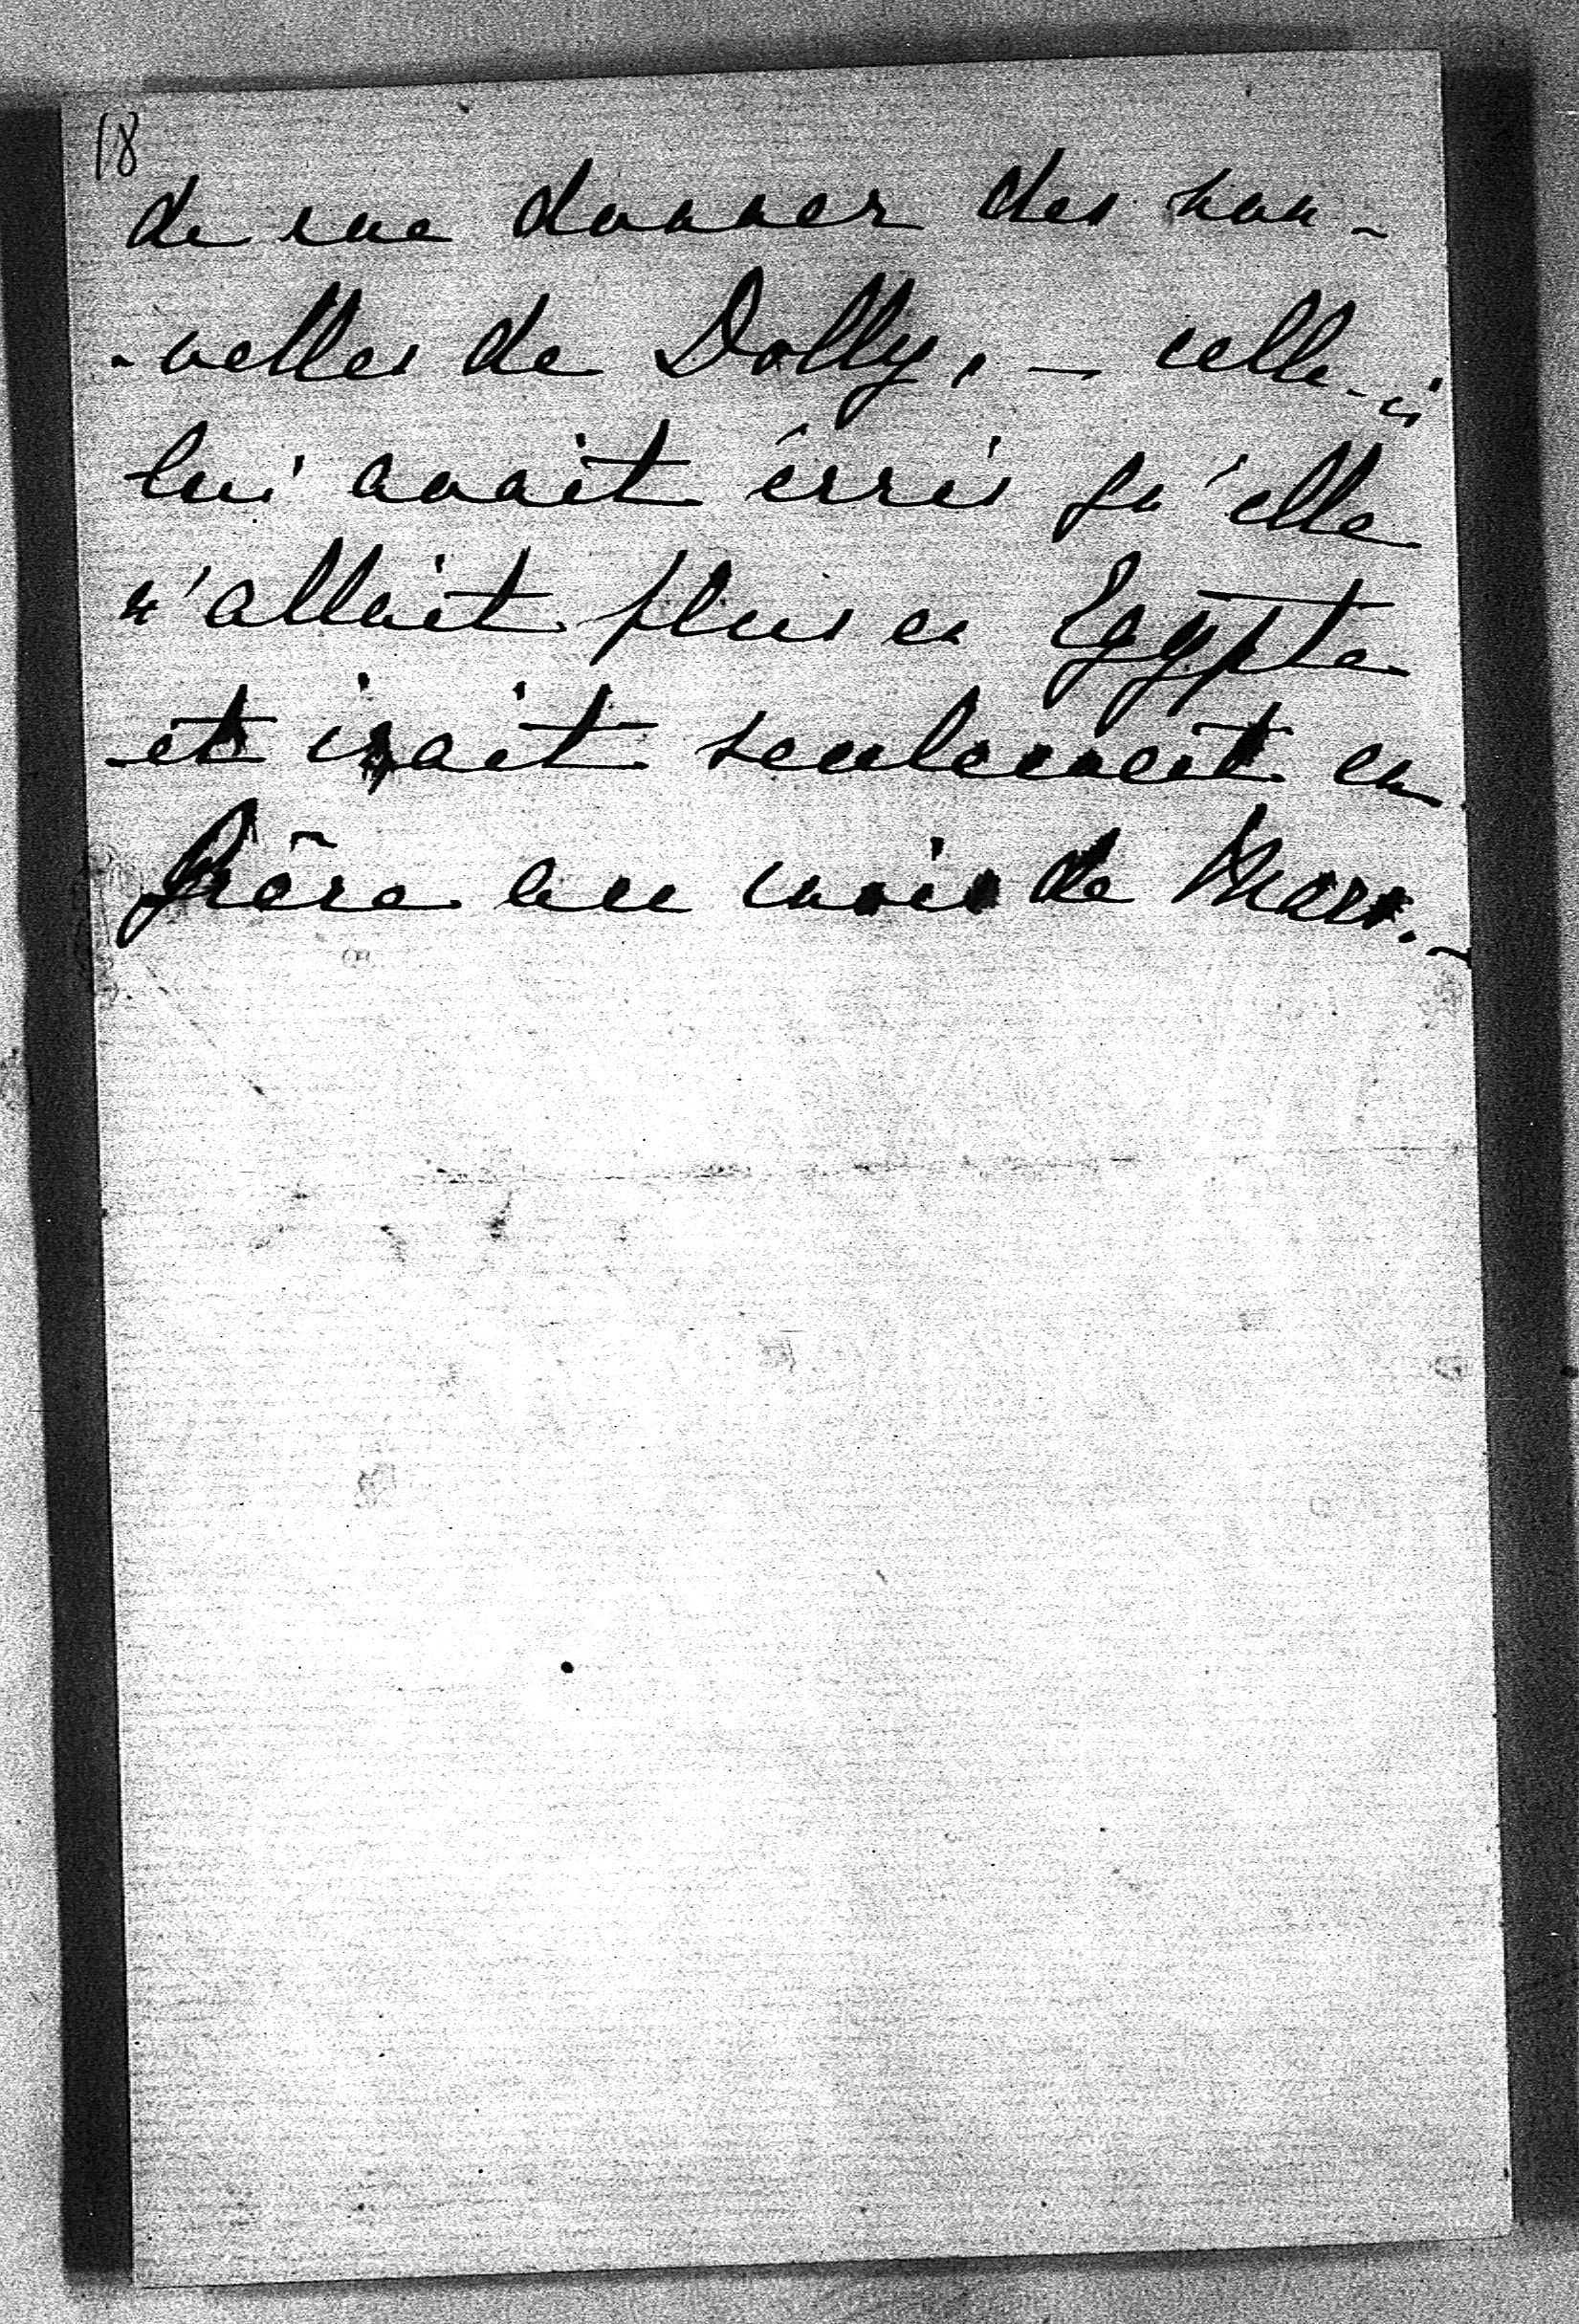 18
de me donner des nou-
-velles de Dolly. - celle-ci
lui avait écris qu'elle
n'allait plus en Egypte
et irait seulement en
Grêce au mois de Mars. -